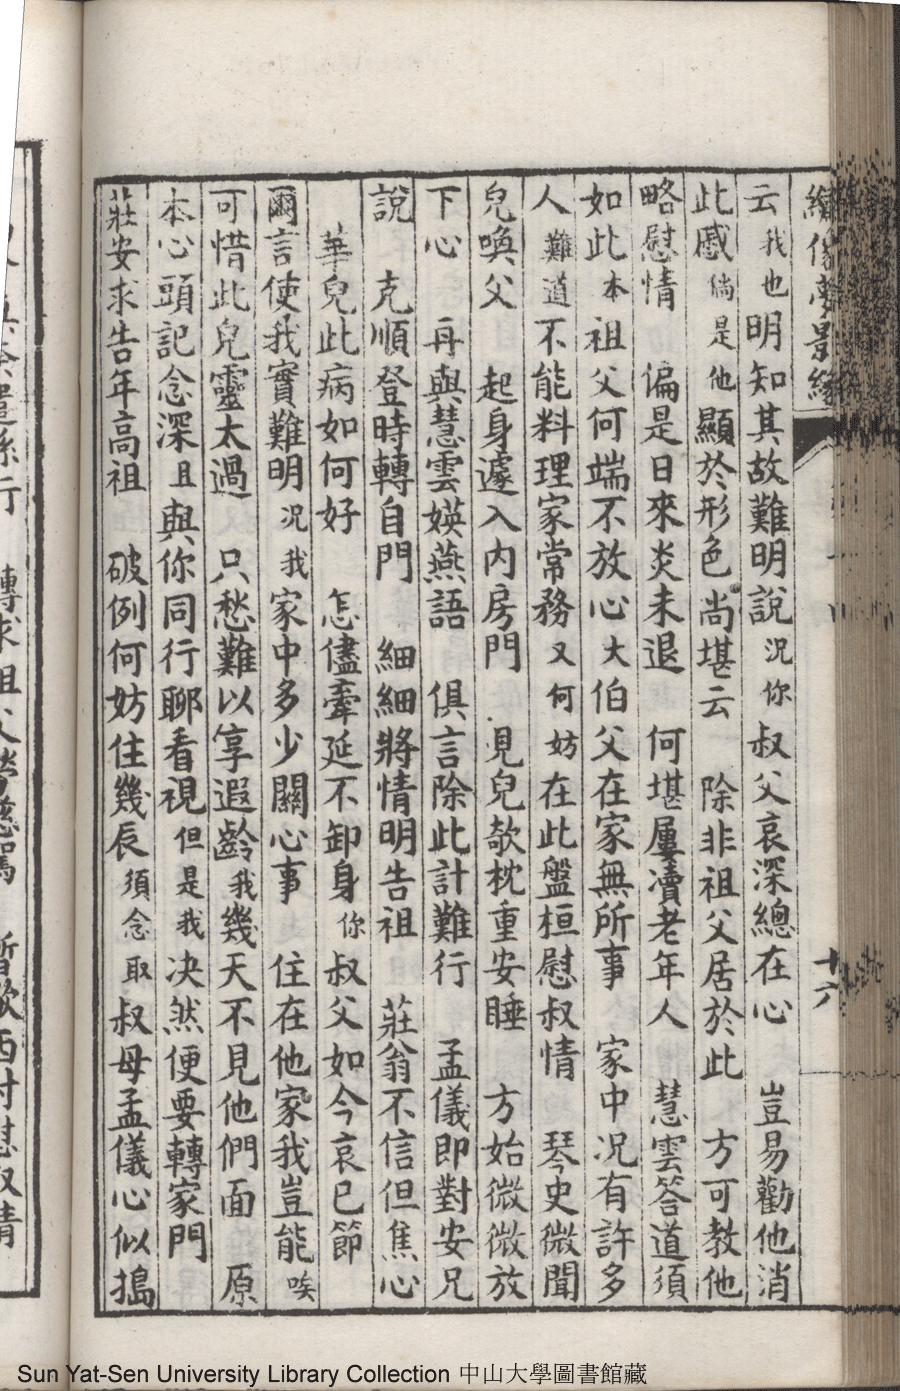 繡像夢影緣
十六
云我也明知其故難明說況你叔父哀深總在心 豈易勸他消
此慼倘是他顯於形色尚堪云 除非祖父居於此 方可教他
略慰情 偏是日來炎未退 何堪屢瀆老年人 慧雲答道須
如此本祖父何端不放心大伯父在家無所事 家中况有許多
人難道不能料理家常務又何妨在此盤桓慰叔情 琴史微聞
兒喚父 起身遽入內房門 見兒欹枕重安睡 方始微微放
下心 再與慧雲媖燕語 俱言除此計難行 孟儀即對安兄
說 克順登時轉自門 細細將情明告祖 莊翁不信但焦心
華兒此病如何好 怎儘牽延不卸身你叔父如今哀已節
爾言使我實難明况我家中多少關心事 住在他家我豈能唉
可惜此兒靈太過 只愁難以享遐齡我幾天不見他們面 原
本心頭記念深且與你同行聊看視但是我决然便要轉家門
莊安求告年高祖 破例何妨住幾辰須念取叔母孟儀心似搗
轉求祖父勞慈駕 暫歇西村慰叔情